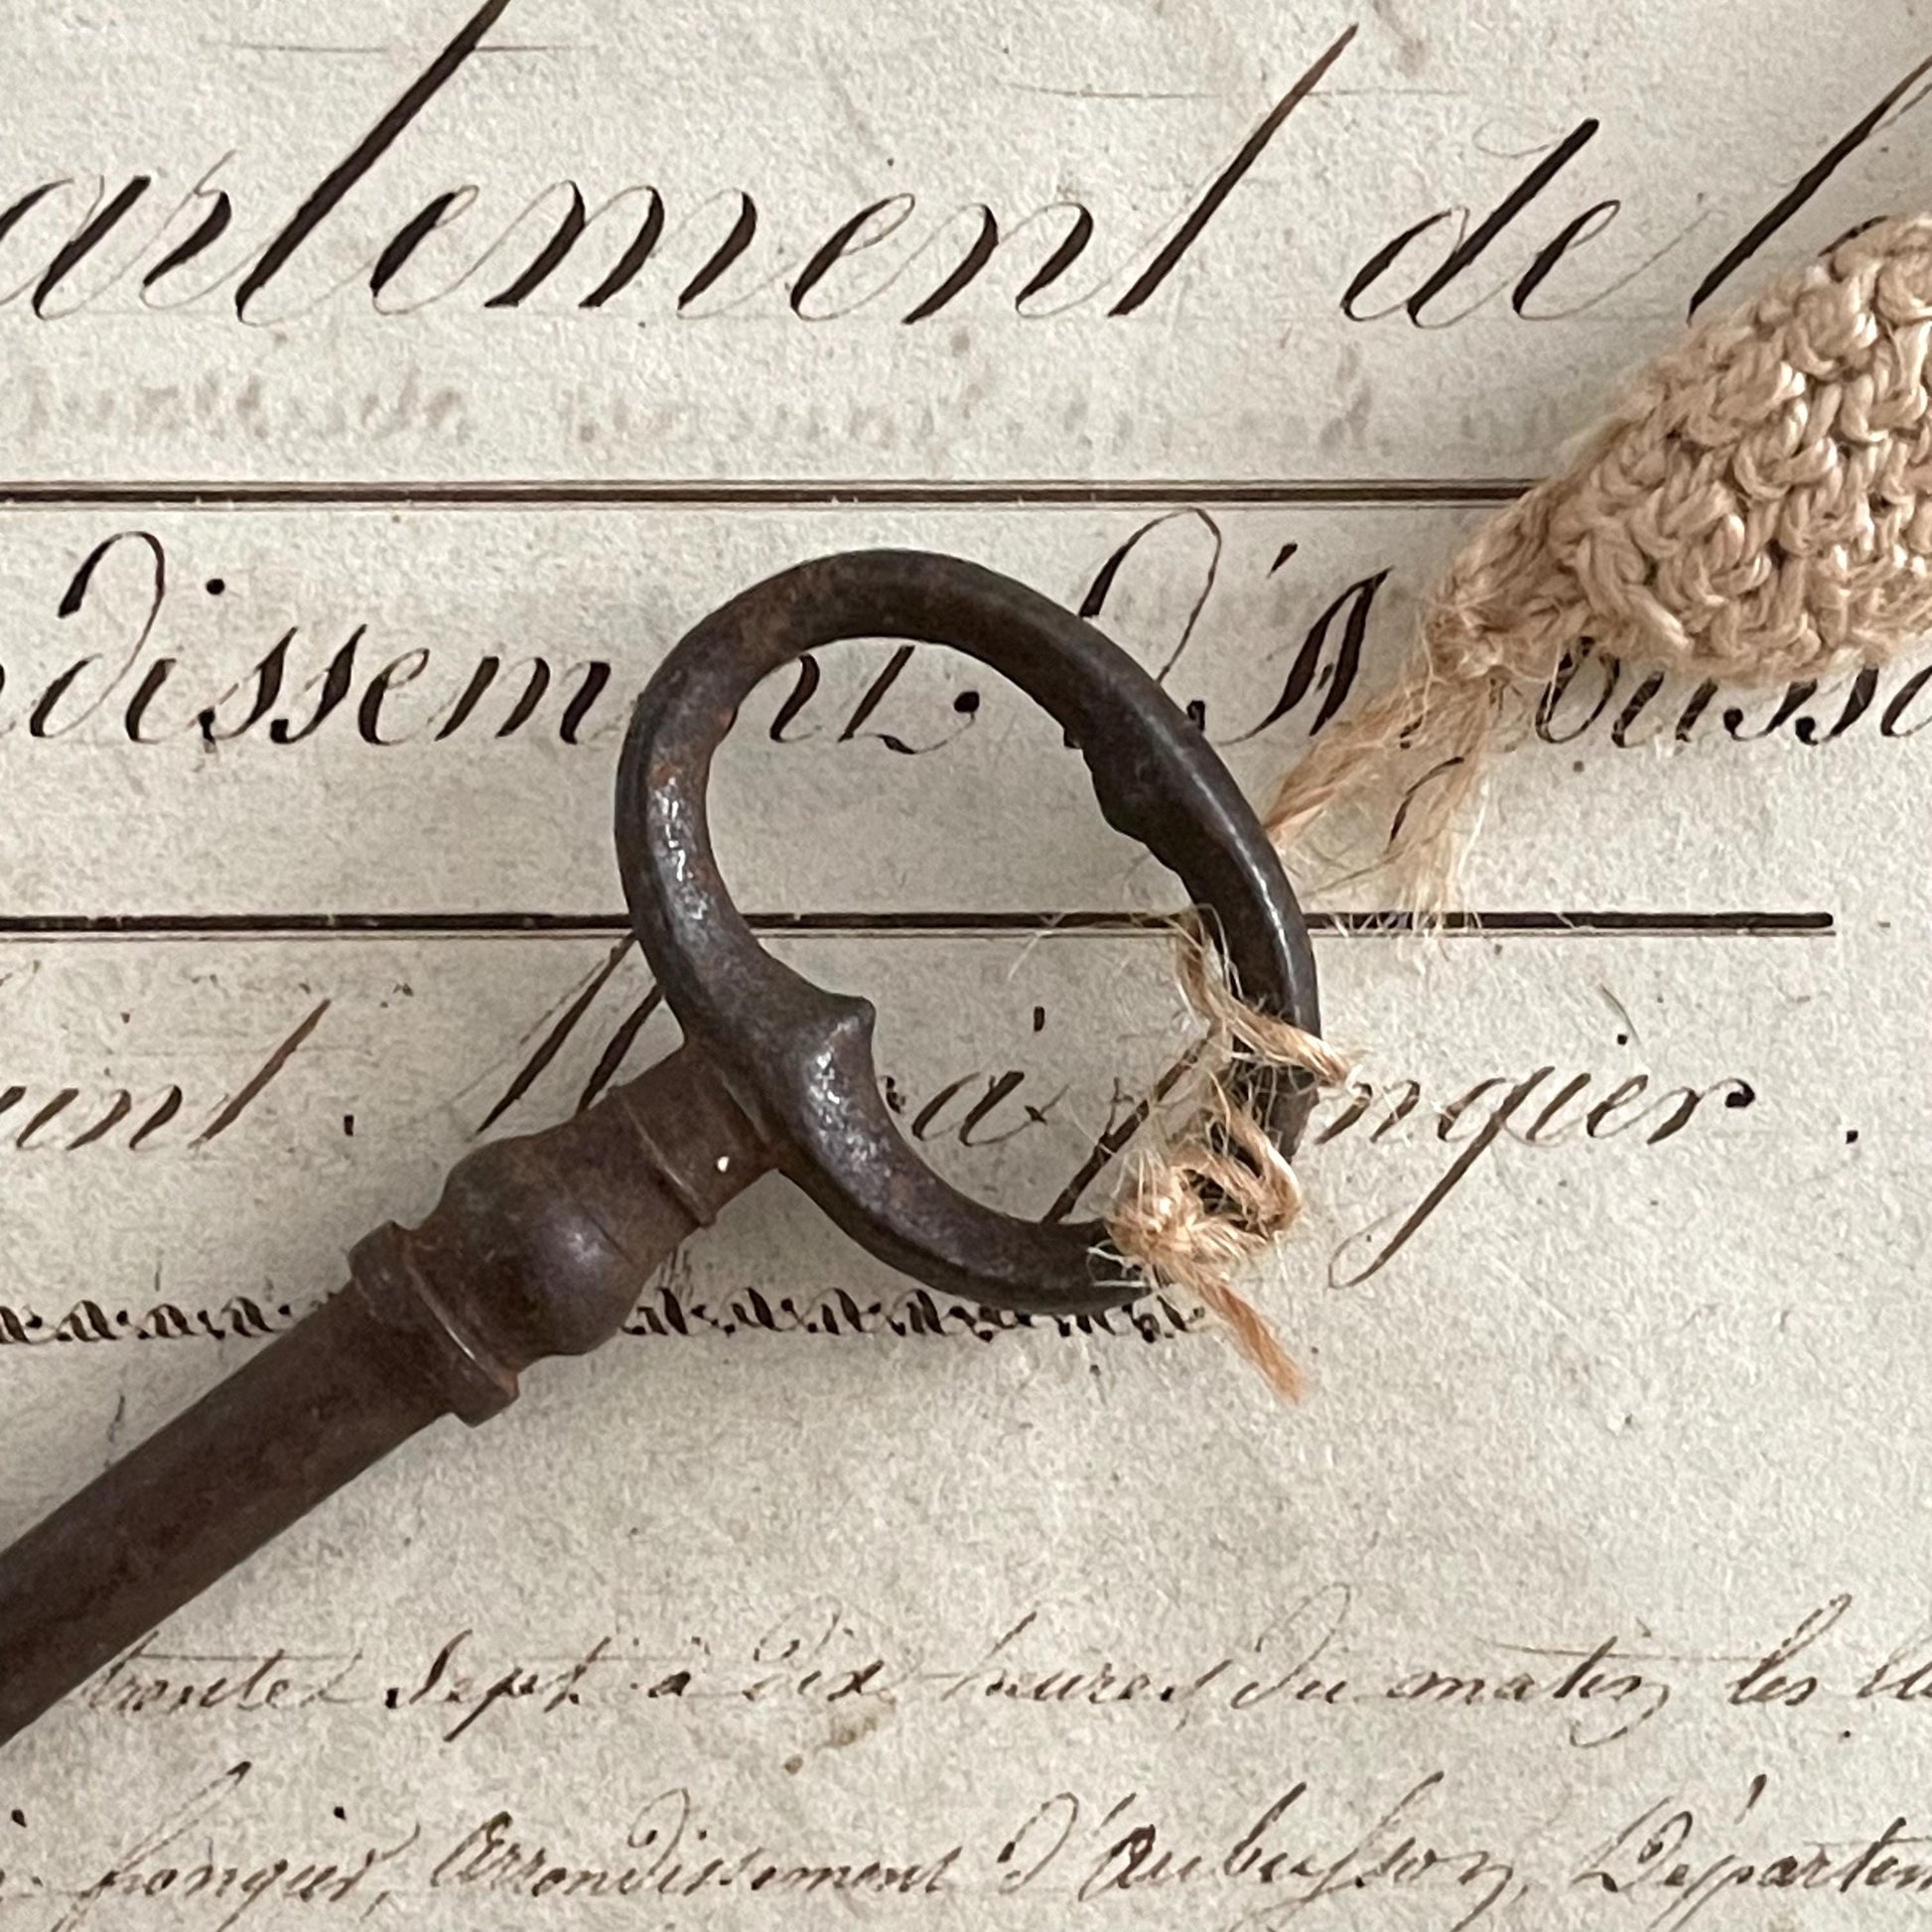 artement de l
dissement. D'A busso
à fongier.
trentes Sept à Dix heures du matin les
fongier, Arrondissement D'Aubusson, Départem